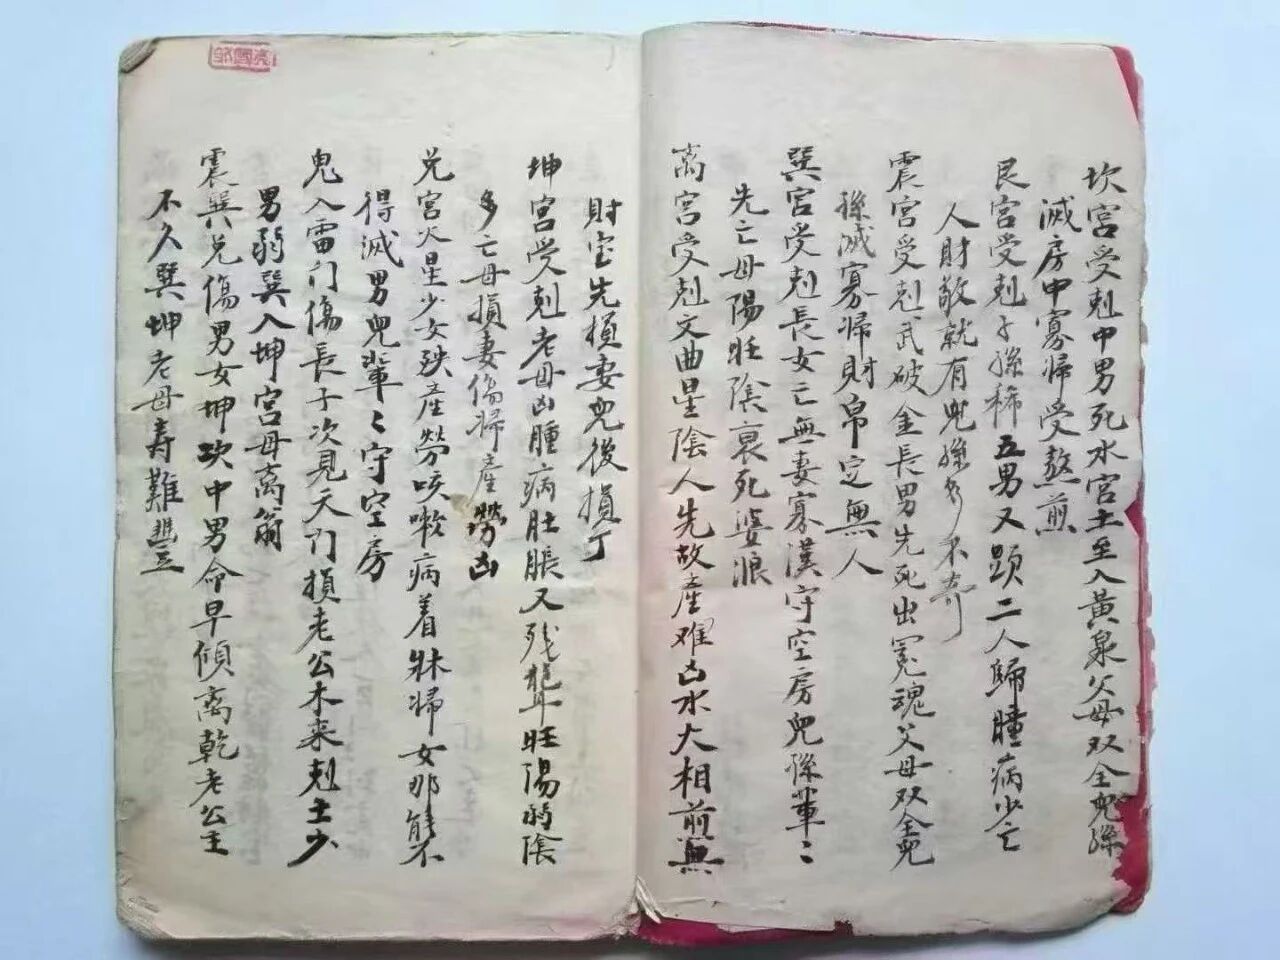 坎宮受剋中男死水宮土至入黃泉父母双全兒孫
滅房中寡帰受熬煎
艮宮受剋子孫稀五男又題二人歸腫病少亡
人財敬就有兒孫多不奇
震宮受剋武破金長男先死出冤魂父母双全兒
孫滅寡帰財帛定無人
巽宮受剋長女亡無妻寡漢守空房兒孫輩〻
先亡母陽旺陰衰死婆浪
离宮受剋文曲星陰人先故產难凶水大相煎無
財宝先損妻兒後損丁
坤宮受剋老母凶腫病肚脹又残聾旺陽弱陰
多亡母損妻傷帰產勞凶
兑宮火星少女殃產勞咳嗽病着牀帰女那能不
得滅男兒輩〻守空房
鬼入雷门傷長子次見天门損老公木来剋土少
男弱巽入坤宮母离翁
震巽兑傷男女坤坎中男命早傾离乾老公主
不久巽坤老母寿難豊